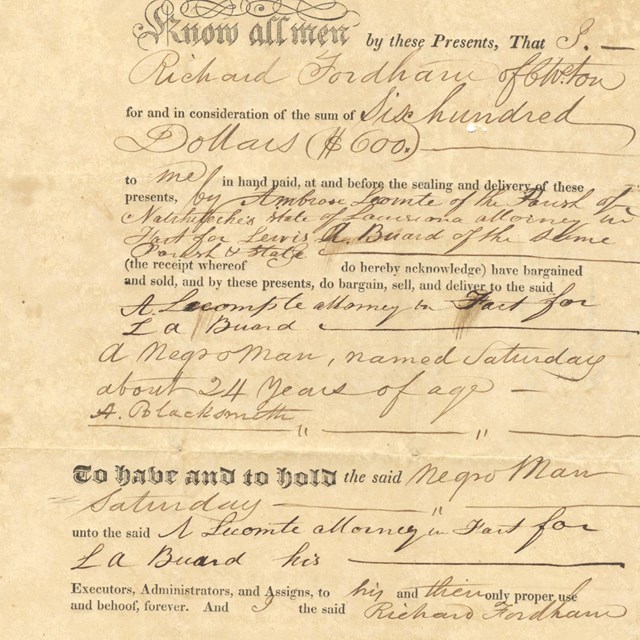 Know all men by these Presents, That I. —
Richard Fordham of Chs.ton
for and in consideration of the sum of Six hundred
Dollars ($600.)
to me in hand paid, at and before the sealing and delivery of these
presents, by Ambrose Lecomte of the Parish of
Natchitoches State of Louisiana attorney in
Fact for Lewis A. Buard of the same
Parish & State
(the receipt whereof I do hereby acknowledge) have bargained
and sold, and by these presents, do bargain, sell, and deliver to the said
A Lecompte attorney in Fact for
L A Buard
A Negro Man, named Saturday
about 24 Years of age —
A. Blacksmith
" "
To have and to hold the said Negro Man
Saturday — "
unto the said A Lecomte attorney in Fact for
L A Buard his
Executors, Administrators, and Assigns, to his and their only proper use
and behoof, forever. And I the said Richard Fordham